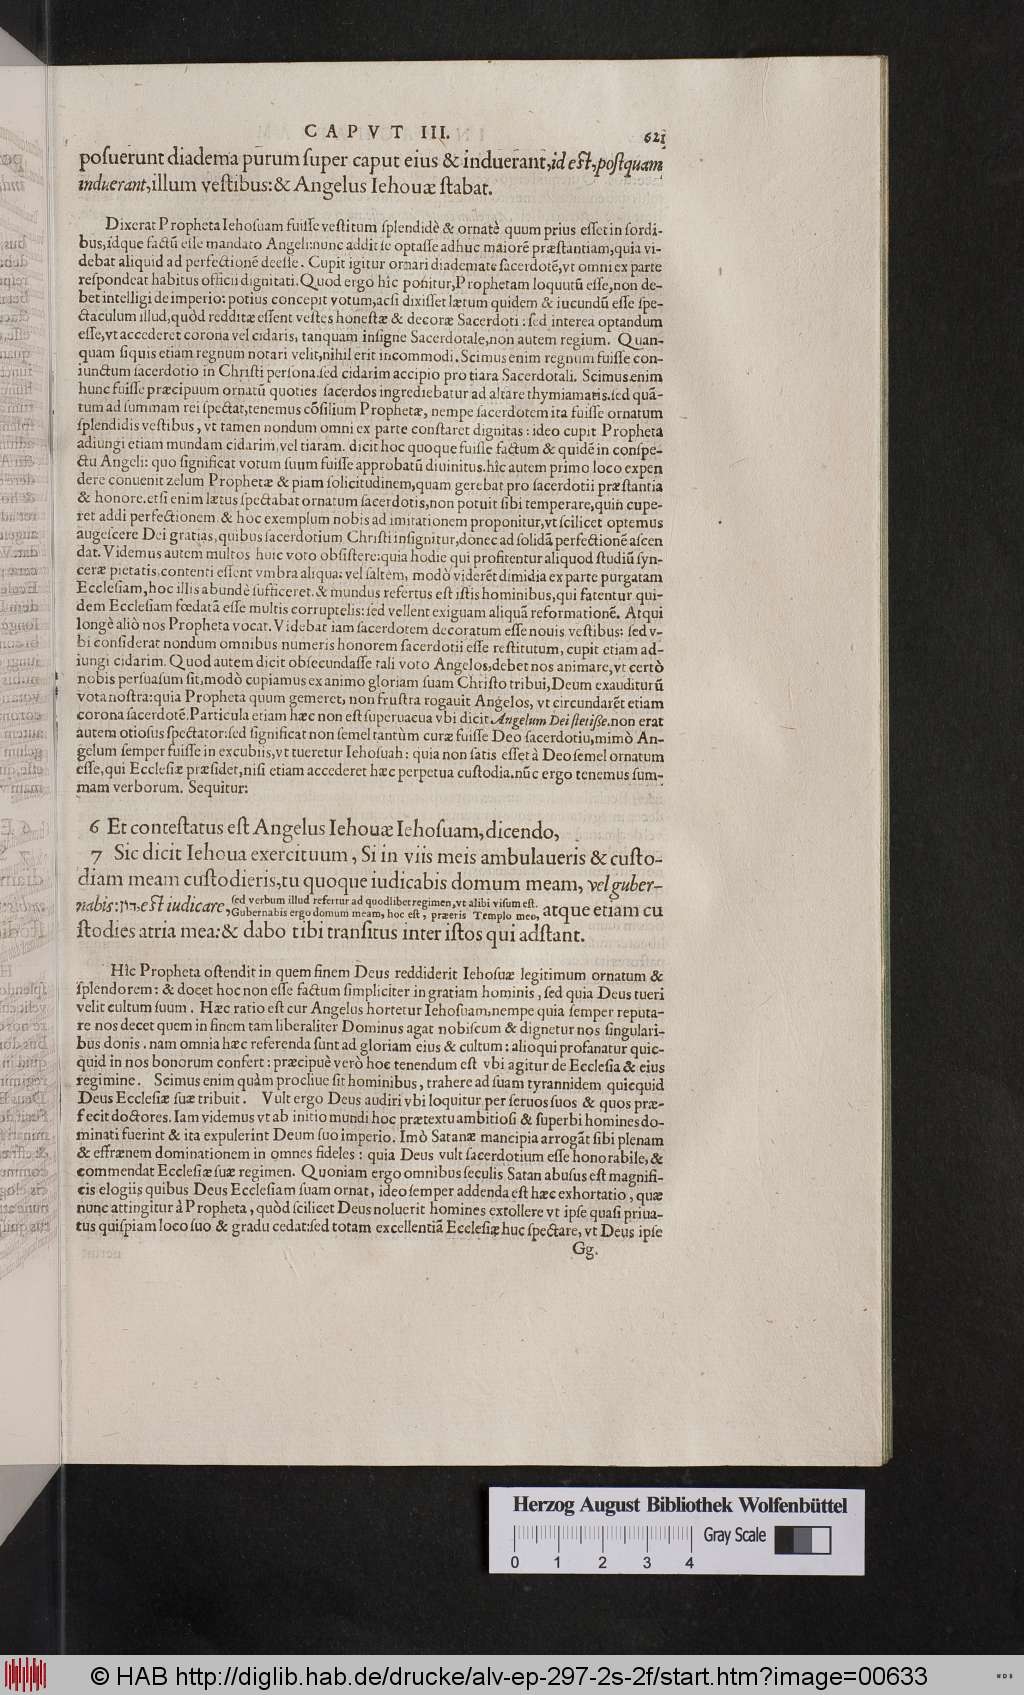 CAPVT III. 621
posuerunt diadema purum super caput eius & induerant, id est, postquam
induerant, illum vestibus: & Angelus Iehouæ stabat.
Dixerat Propheta Iehosuam fuisse vestitum splendidè & ornatè quum prius esset in sordi-
bus, idque factũ esse mandato Angeli: nunc addit se optasse adhuc maiorẽ præstantiam, quia vi-
debat aliquid ad perfectionẽ deesse. Cupit igitur ornari diademate sacerdotẽ, vt omni ex parte
respondeat habitus officii dignitati. Quod ergo hîc ponitur, Prophetam loquutũ esse, non de-
bet intelligi de imperio: potius concepit votum, acsi dixisset lætum quidem & iucundũ esse spe-
ctaculum illud, quòd redditæ essent vestes honestæ & decoræ Sacerdoti: sed interea optandum
esse, vt accederet corona vel cidaris, tanquam insigne Sacerdotale, non autem regium. Quan-
quam siquis etiam regnum notari velit, nihil erit incommodi. Scimus enim regnum fuisse con-
iunctum sacerdotio in Christi persona. sed cidarim accipio pro tiara Sacerdotali. Scimus enim
hunc fuisse præcipuum ornatũ quoties sacerdos ingrediebatur ad altare thymiamatis. sed quã-
tum ad summam rei spectat, tenemus cõsilium Prophetæ, nempe sacerdotem ita fuisse ornatum
splendidis vestibus, vt tamen nondum omni ex parte constaret dignitas: ideo cupit Propheta
adiungi etiam mundam cidarim, vel tiaram. dicit hoc quoque fuisse factum & quidẽ in conspe-
ctu Angeli: quo significat votum suum fuisse approbatũ diuinitus. hîc autem primo loco expen
dere conuenit zelum Prophetæ & piam solicitudinem, quam gerebat pro sacerdotii præstantia
& honore. etsi enim lætus spectabat ornatum sacerdotis, non potuit sibi temperare, quin cupe-
ret addi perfectionem. & hoc exemplum nobis ad imitationem proponitur, vt scilicet optemus
augescere Dei gratias, quibus sacerdotium Christi insignitur, donec ad solidã perfectionẽ ascen
dat. Videmus autem multos huic voto obsistere: quia hodie qui profitentur aliquod studiũ syn-
ceræ pietatis, contenti essent vmbra aliqua: vel saltem, modò viderẽt dimidia ex parte purgatam
Ecclesiam, hoc illis abundè sufficeret. & mundus refertus est istis hominibus, qui fatentur qui-
dem Ecclesiam fœdatã esse multis corruptelis: sed vellent exiguam aliquã reformationẽ. Atqui
longè aliò nos Propheta vocat. Videbat iam sacerdotem decoratum esse nouis vestibus: sed v-
bi considerat nondum omnibus numeris honorem sacerdotii esse restitutum, cupit etiam ad-
iungi cidarim. Quod autem dicit obsecundasse tali voto Angelos, debet nos animare, vt certò
nobis persuasum sit, modò cupiamus ex animo gloriam suam Christo tribui, Deum exauditurũ
vota nostra: quia Propheta quum gemeret, non frustra rogauit Angelos, vt circundarẽt etiam
corona sacerdotẽ. Particula etiam hæc non est superuacua vbi dicit Angelum Dei stetisse. non erat
autem otiosus spectator: sed significat non semel tantùm curæ fuisse Deo sacerdotiũ, mimò An-
gelum semper fuisse in excubiis, vt tueretur Iehosuah: quia non satis esset à Deo semel ornatum
esse, qui Ecclesiæ præsidet, nisi etiam accederet hæc perpetua custodia. nũc ergo tenemus sum-
mam verborum. Sequitur:
6 Et contestatus est Angelus Iehouæ Iehosuam, dicendo,
7 Sic dicit Iehoua exercituum, Si in viis meis ambulaueris & custo-
diam meam custodieris, tu quoque iudicabis domum meam, vel guber-
nabis: דין, est iudicare, sed verbum illud refertur ad quodlibet regimen, vt alibi visum est.
, Gubernabis ergo domum meam, hoc est, præeris Templo meo, atque etiam cu
stodies atria mea: & dabo tibi transitus inter istos qui adstant.
Hîc Propheta ostendit in quem finem Deus reddiderit Iehosuæ legitimum ornatum &
splendorem: & docet hoc non esse factum simpliciter in gratiam hominis, sed quia Deus tueri
velit cultum suum. Hæc ratio est cur Angelus hortetur Iehosuam, nempe quia semper reputa-
re nos decet quem in finem tam liberaliter Dominus agat nobiscum & dignetur nos singulari-
bus donis. nam omnia hæc referenda sunt ad gloriam eius & cultum: alioqui profanatur quic-
quid in nos bonorum confert: præcipuè verò hoc tenendum est vbi agitur de Ecclesia & eius
regimine. Scimus enim quàm procliue sit hominibus, trahere ad suam tyrannidem quicquid
Deus Ecclesiæ suæ tribuit. Vult ergo Deus audiri vbi loquitur per seruos suos & quos præ-
fecit doctores. Iam videmus vt ab initio mundi hoc prætextu ambitiosi & superbi homines do-
minati fuerint & ita expulerint Deum suo imperio. Imò Satanæ mancipia arrogãt sibi plenam
& effrænem dominationem in omnes fideles: quia Deus vult sacerdotium esse honorabile, &
commendat Ecclesiæ suæ regimen. Quoniam ergo omnibus seculis Satan abusus est magnifi-
cis elogiis quibus Deus Ecclesiam suam ornat, ideo semper addenda est hæc exhortatio, quæ
nunc attingitur à Propheta, quòd scilicet Deus noluerit homines extollere vt ipse quasi priua-
tus quispiam loco suo & gradu cedat: sed totam excellentiã Ecclesiæ huc spectare, vt Deus ipse
Gg.
Herzog August Bibliothek Wolfenbüttel
Gray Scale
0 1 2 3 4
© HAB http://diglib.hab.de/drucke/alv-ep-297-2s-2f/start.htm?image=00633